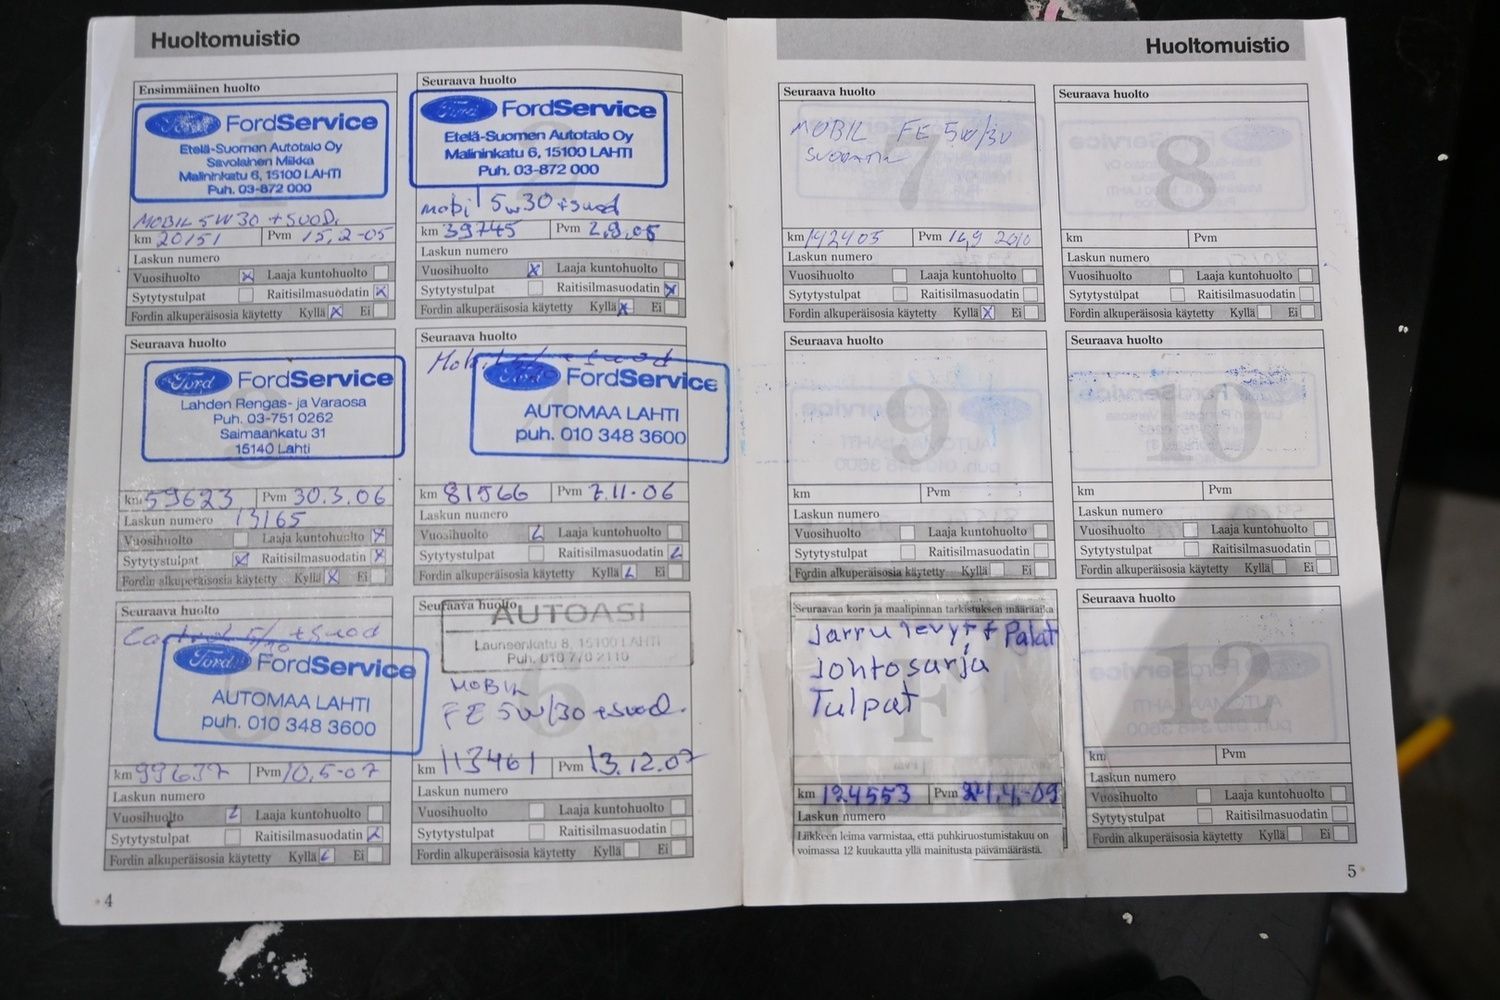 Huoltomuistio
Ensimmäinen huolto
Ford FordService
Etelä-Suomen Autotalo Oy
Savolainen Miikka
Malininkatu 6, 15100 LAHTI
Puh. 03-872 000
MOBIL 5W30 + SUOD.
km 20151 Pvm 15.2-05
Laskun numero
Vuosihuolto Laaja kuntohuolto
Sytytystulpat Raitisilmasuodatin
Fordin alkuperäisosia käytetty Kyllä Ei
Seuraava huolto
Ford FordService
Etelä-Suomen Autotalo Oy
Malininkatu 6, 15100 LAHTI
Puh. 03-872 000
Mobil 5w30 + suod
km 39745 Pvm 2.9.05
Laskun numero
Vuosihuolto Laaja kuntohuolto
Sytytystulpat Raitisilmasuodatin
Fordin alkuperäisosia käytetty Kyllä Ei
Seuraava huolto
Ford FordService
Lahden Rengas- ja Varaosa
Puh. 03-751 0262
Saimaankatu 31
15140 Lahti
3
km 59623 Pvm 30.3.06
Laskun numero 13165
Vuosihuolto Laaja kuntohuolto
Sytytystulpat Raitisilmasuodatin
Fordin alkuperäisosia käytetty Kyllä Ei
Seuraava huolto
+ suod
Ford FordService
AUTOMAA LAHTI
puh. 010 348 3600
4
km 81566 Pvm 7.11-06
Laskun numero
Vuosihuolto Laaja kuntohuolto
Sytytystulpat Raitisilmasuodatin
Fordin alkuperäisosia käytetty Kyllä Ei
Seuraava huolto
Castrol 5/30 + suod
Ford FordService
AUTOMAA LAHTI
puh. 010 348 3600
5
km 99637 Pvm 10.5-07
Laskun numero
Vuosihuolto Laaja kuntohuolto
Sytytystulpat Raitisilmasuodatin
Fordin alkuperäisosia käytetty Kyllä Ei
Seuraava huolto
AUTOASI
Launeenkatu 8, 15100 LAHTI
Puh. 010 770 2110
MOBIL
FE 5W/30 + suod.
6
km 113461 Pvm 13.12.07
Laskun numero
Vuosihuolto Laaja kuntohuolto
Sytytystulpat Raitisilmasuodatin
Fordin alkuperäisosia käytetty Kyllä Ei
4
Huoltomuistio
Seuraava huolto
MOBIL FE 5W/30
7
km 142405 Pvm 16.9 2010
Laskun numero
Vuosihuolto Laaja kuntohuolto
Sytytystulpat Raitisilmasuodatin
Fordin alkuperäisosia käytetty Kyllä Ei
Seuraava huolto
8
km Pvm
Laskun numero
Vuosihuolto Laaja kuntohuolto
Sytytystulpat Raitisilmasuodatin
Fordin alkuperäisosia käytetty Kyllä Ei
Seuraava huolto
9
km Pvm
Laskun numero
Vuosihuolto Laaja kuntohuolto
Sytytystulpat Raitisilmasuodatin
Fordin alkuperäisosia käytetty Kyllä Ei
Seuraava huolto
10
km Pvm
Laskun numero
Vuosihuolto Laaja kuntohuolto
Sytytystulpat Raitisilmasuodatin
Fordin alkuperäisosia käytetty Kyllä Ei
Seuraavan korin ja maalipinnan tarkistuksen määräaika
Jarrulevyt + Palat
Johtosarja
Tulpat
F
km 124553 Pvm 21.4.-09
Laskun numero
Liikkeen leima varmistaa, että puhkiruostumistakuu on
voimassa 12 kuukautta yllä mainitusta päivämäärästä.
Seuraava huolto
12
km Pvm
Laskun numero
Vuosihuolto Laaja kuntohuolto
Sytytystulpat Raitisilmasuodatin
Fordin alkuperäisosia käytetty Kyllä Ei
5